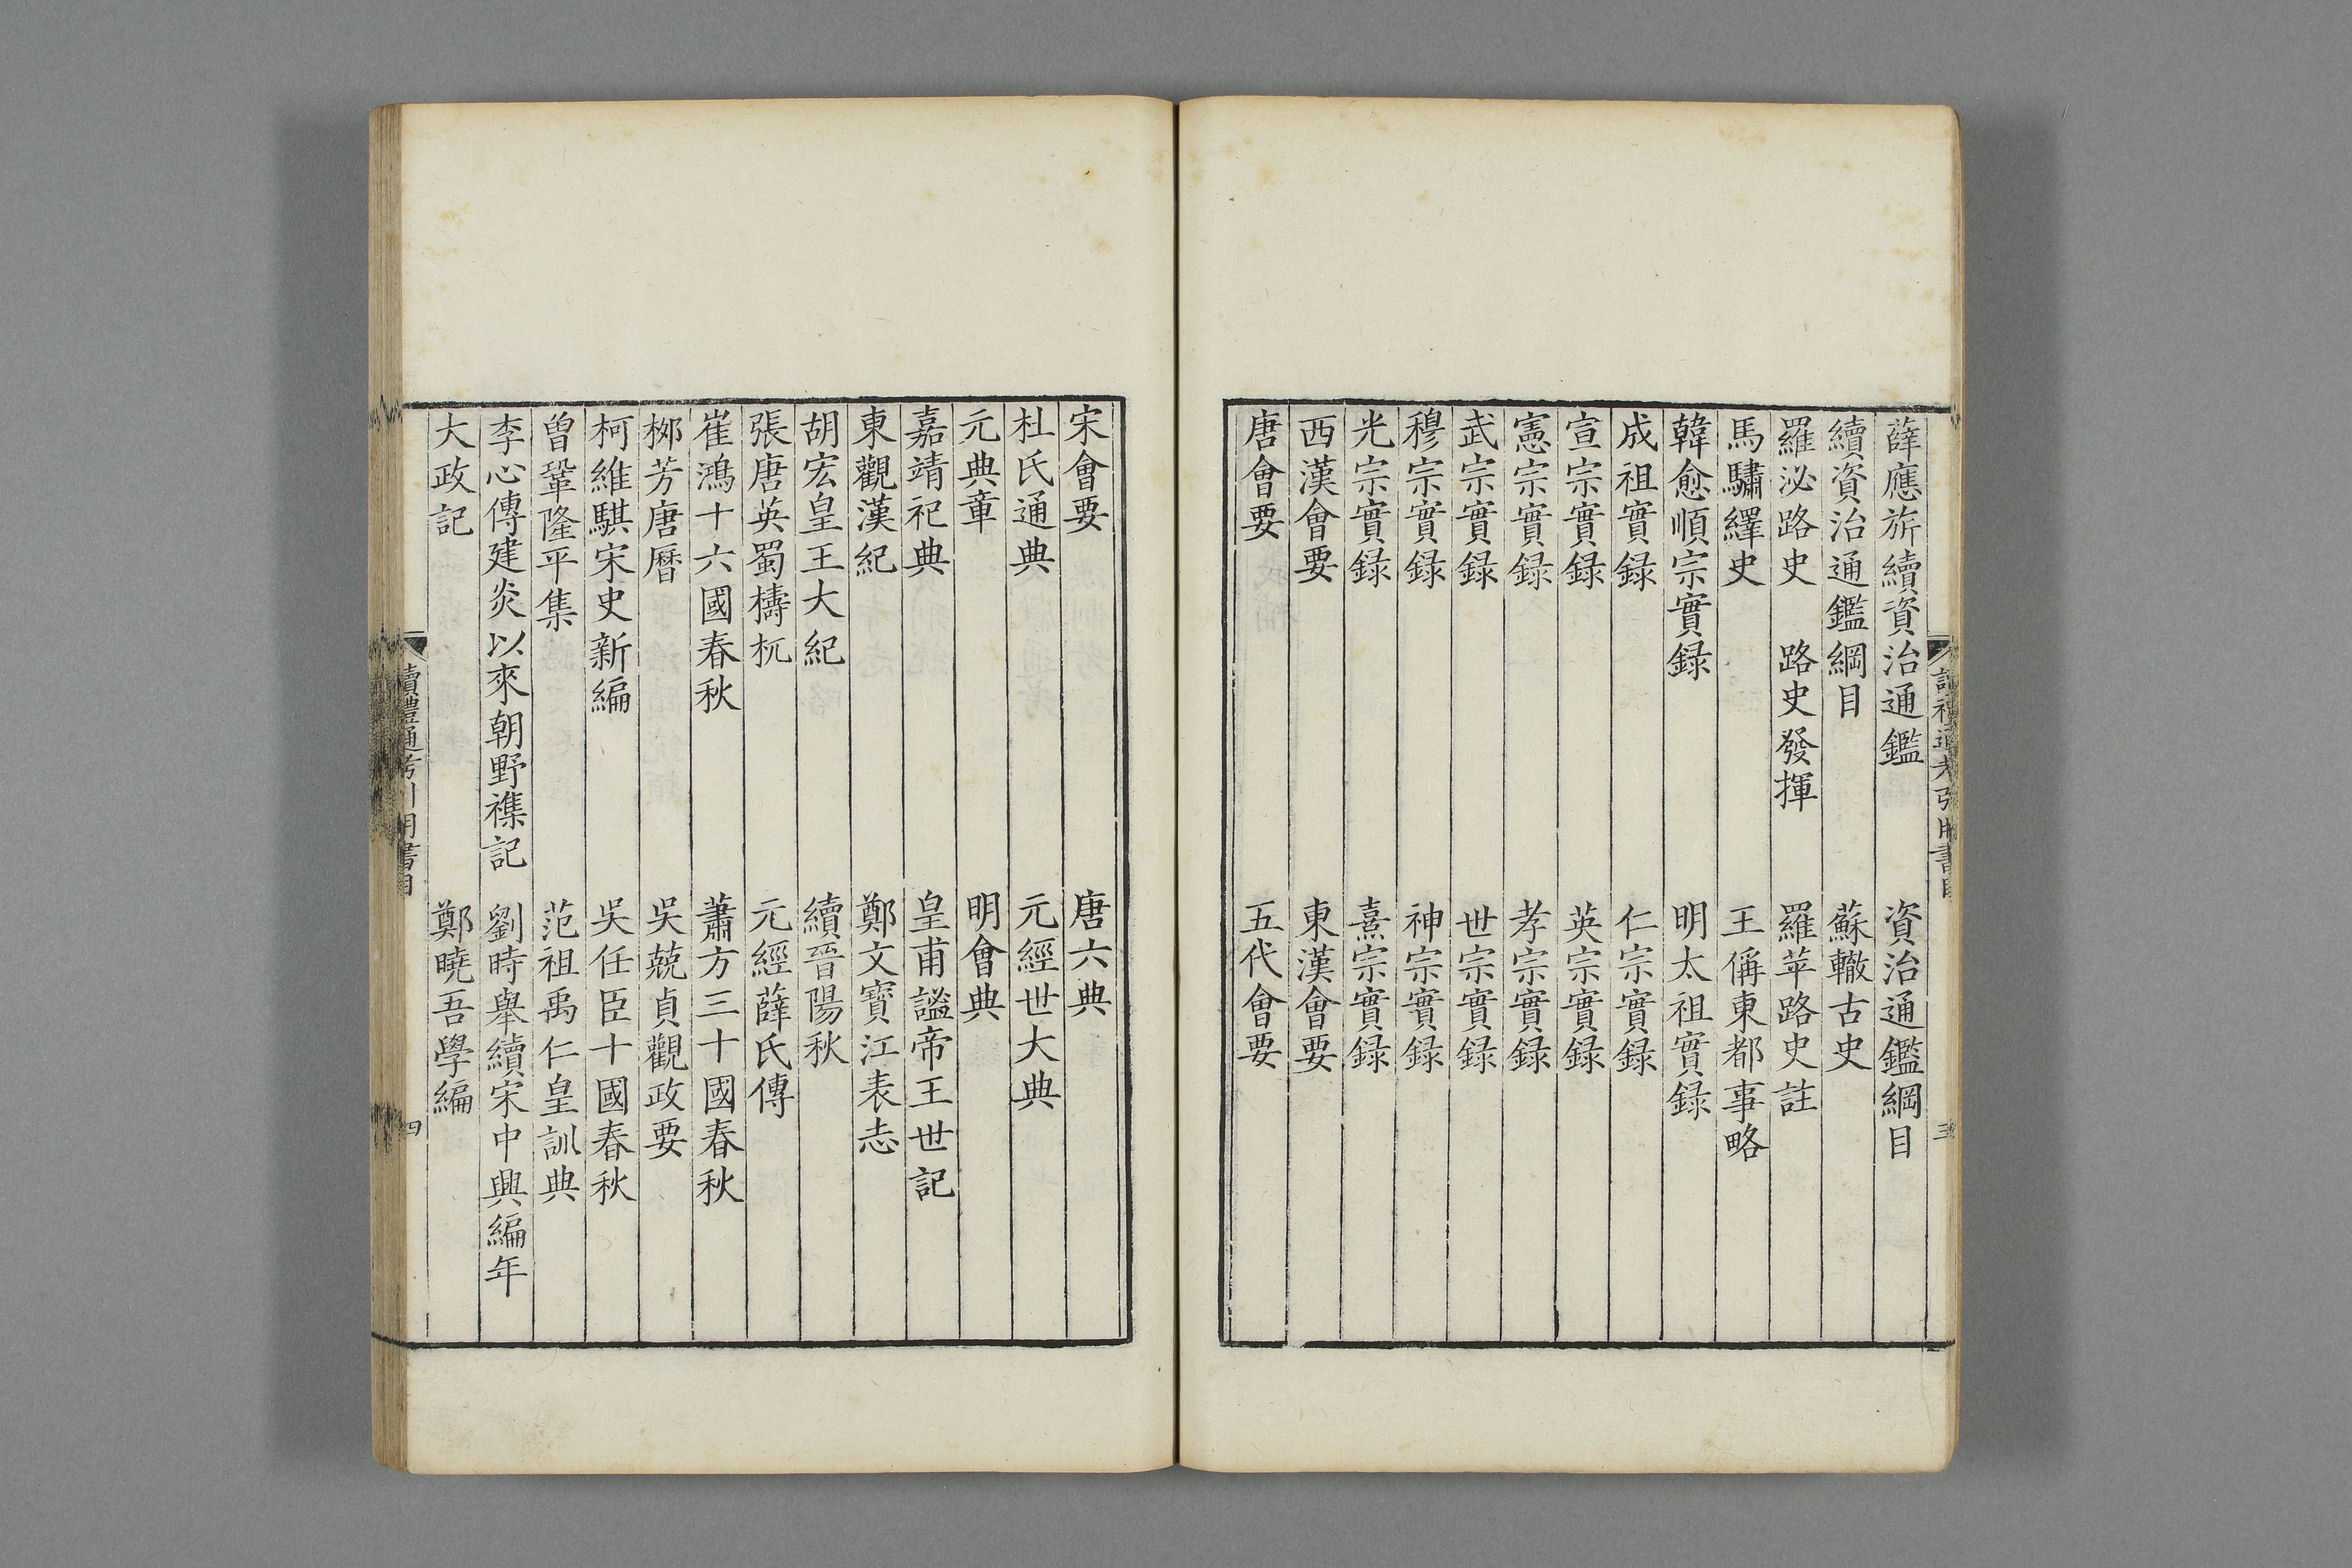 薛應旂續資治通鑑 資治通鑑綱目
續資治通鑑綱目 蘇轍古史
羅泌路史 路史發揮 羅苹路史註
馬驌繹史 王偁東都事略
韓愈順宗實録 明太祖實録
成祖實録 仁宗實録
宣宗實録 英宗實録
憲宗實録 孝宗實録
武宗實録 世宗實録
穆宗實録 神宗實録
光宗實録 熹宗實録
西漢會要 東漢會要
唐會要 五代會要
宋會要 唐六典
杜氏通典 元經世大典
元典章 明會典
嘉靖祀典 皇甫謐帝王世記
東觀漢紀 鄭文寳江表志
胡宏皇王大紀 續晉陽秋
張唐英蜀檮杌 元經薛氏傳
崔鴻十六國春秋 蕭方三十國春秋
桺芳唐曆 吳兢貞觀政要
柯維騏宋史新編 吳任臣十國春秋
曾鞏隆平集 范祖禹仁皇訓典
李心傳建炎以來朝野襍記 劉時舉續宋中興編年
大政記 鄭曉吾學編
讀禮通考引用書目 四